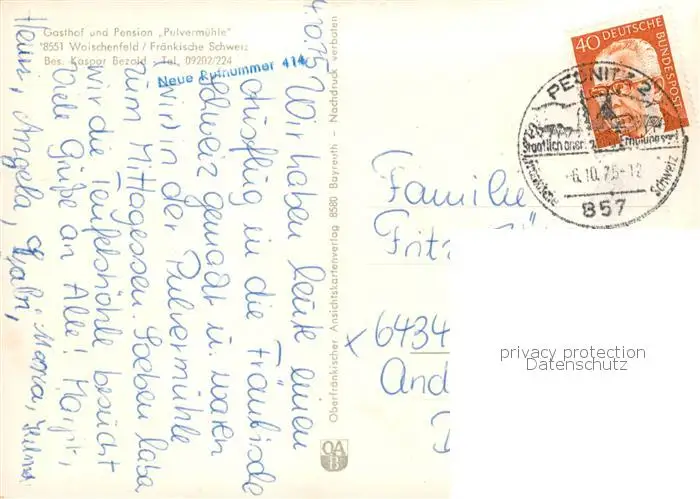 Gasthof und Pension „Pulvermühle"
8551 Waischenfeld / Fränkische Schweiz
Bes. Kaspar Bezold - Tel. 09202/224
Neue Rufnummer 414
4.10.75
Wir haben heute einen
Ausflug in die Fränkische
Schweiz gemacht u. waren
in der Pulvermühle
zum Mittagessen. Soeben haben
wir die Teufelshöhle besucht
Viele Grüße an Alle! Margit,
Heini, Angela, Gabi, Maria,
Oberfränkischer Ansichtskartenverlag 8580 Bayreuth - Nachdruck verboten
OA
B
40
DEUTSCHE
BUNDESPOST
PEGNITZ 2
Staatlich anerk. Erholungsort
Fränkische Schweiz
-6.10.75-12
857
Familie
Fritz
x 6434
And
privacy protection
Datenschutz